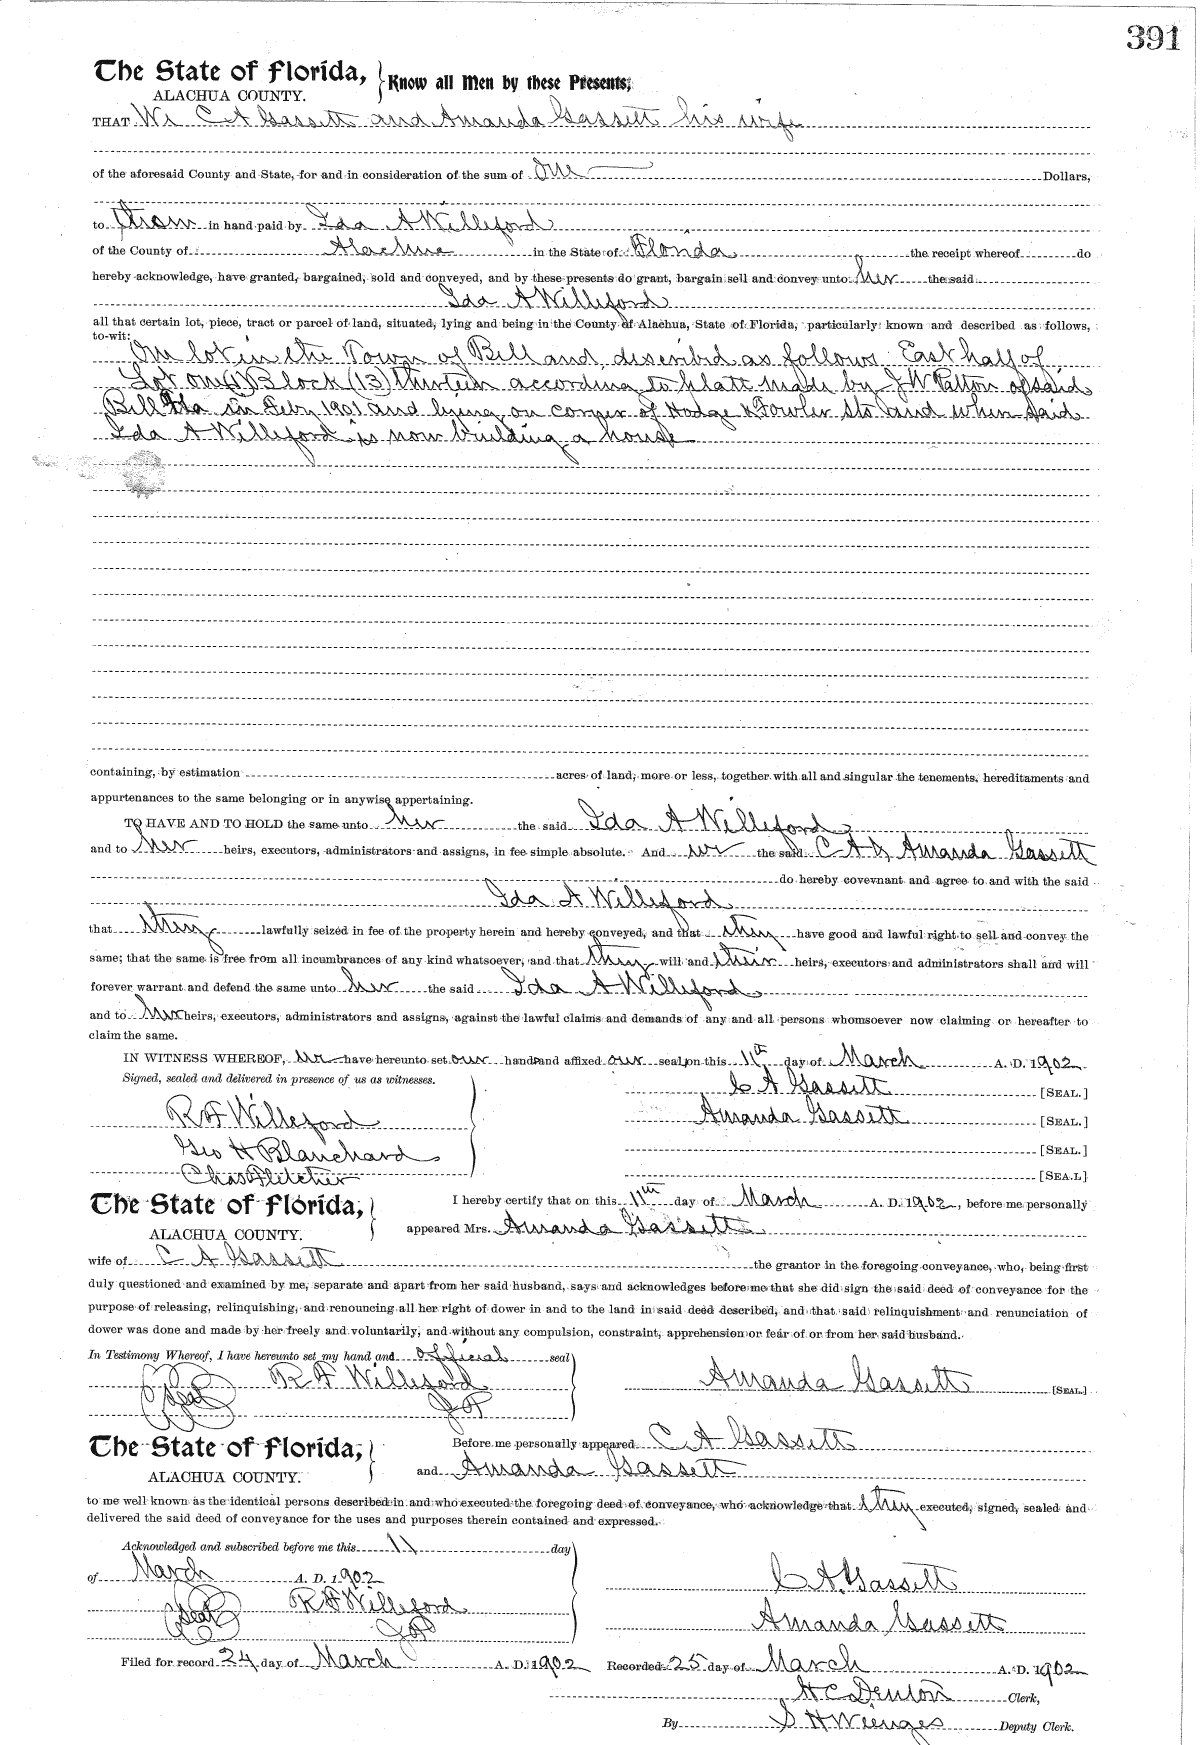 391
The State of Florida, Know all Men by these Presents;
ALACHUA COUNTY.
THAT We C A Gassett and Amanda Gassett his wife
of the aforesaid County and State, for and in consideration of the sum of One Dollars,
to them in hand paid by Ida A Williford
of the County of Alachua in the State of Florida the receipt whereof do
hereby acknowledge, have granted, bargained, sold and conveyed, and by these presents do grant, bargain sell and convey unto her the said
Ida A Williford
all that certain lot, piece, tract or parcel of land, situated, lying and being in the County of Alachua, State of Florida, particularly known and described as follows,
to-wit:
One lot in the Town of Bell and described as follows East half of
Lot One (1) Block (13) thirteen according to platt made by J W Patton of said
Bell Fla in Feby 1901 and lying on corner of Hodge & Fowler Sts and when said
Ida A Williford is now building a house
containing, by estimation acres of land, more or less, together with all and singular the tenements, hereditaments and
appurtenances to the same belonging or in anywise appertaining.
TO HAVE AND TO HOLD the same unto her the said Ida A Williford
and to her heirs, executors, administrators and assigns, in fee simple absolute. And we the said C A & Amanda Gassett
do hereby covevnant and agree to and with the said
Ida A Williford
that they lawfully seized in fee of the property herein and hereby conveyed, and that they have good and lawful right to sell and convey the
same; that the same is free from all incumbrances of any kind whatsoever, and that they will and their heirs, executors and administrators shall and will
forever warrant and defend the same unto her the said Ida A Williford
and to her heirs, executors, administrators and assigns, against the lawful claims and demands of any and all persons whomsoever now claiming or hereafter to
claim the same.
IN WITNESS WHEREOF, we have hereunto set our hands and affixed our seal on this 11th day of March A. D. 1902
Signed, sealed and delivered in presence of us as witnesses.
C A Gassett [SEAL.]
R F Williford
Amanda Gassett [SEAL.]
Geo H Blanchard
[SEAL.]
Chas Fletcher
[SEA.L]
The State of Florida, I hereby certify that on this 11th day of March A. D. 1902, before me personally
ALACHUA COUNTY. appeared Mrs. Amanda Gassett
wife of C A Gassett the grantor in the foregoing conveyance, who, being first
duly questioned and examined by me, separate and apart from her said husband, says and acknowledges before me that she did sign the said deed of conveyance for the
purpose of releasing, relinquishing, and renouncing all her right of dower in and to the land in said deed described, and that said relinquishment and renunciation of
dower was done and made by her freely and voluntarily, and without any compulsion, constraint, apprehension or fear of or from her said husband.
In Testimony Whereof, I have hereunto set my hand and official seal
Seal R F Williford Amanda Gassett [SEAL.]
J P
The State of Florida, Before me personally appeared C A Gassett
ALACHUA COUNTY. and Amanda Gassett
to me well known as the identical persons described in and who executed the foregoing deed of conveyance, who acknowledge that they executed, signed, sealed and
delivered the said deed of conveyance for the uses and purposes therein contained and expressed.
Acknowledged and subscribed before me this 11 day
of March A. D. 1902 C A. Gassett
Seal R F Williford Amanda Gassett
J P
Filed for record 24 day of March A. D. 1902 Recorded 25 day of March A. D. 1902
H C Denton Clerk,
By S H Wienges Deputy Clerk.